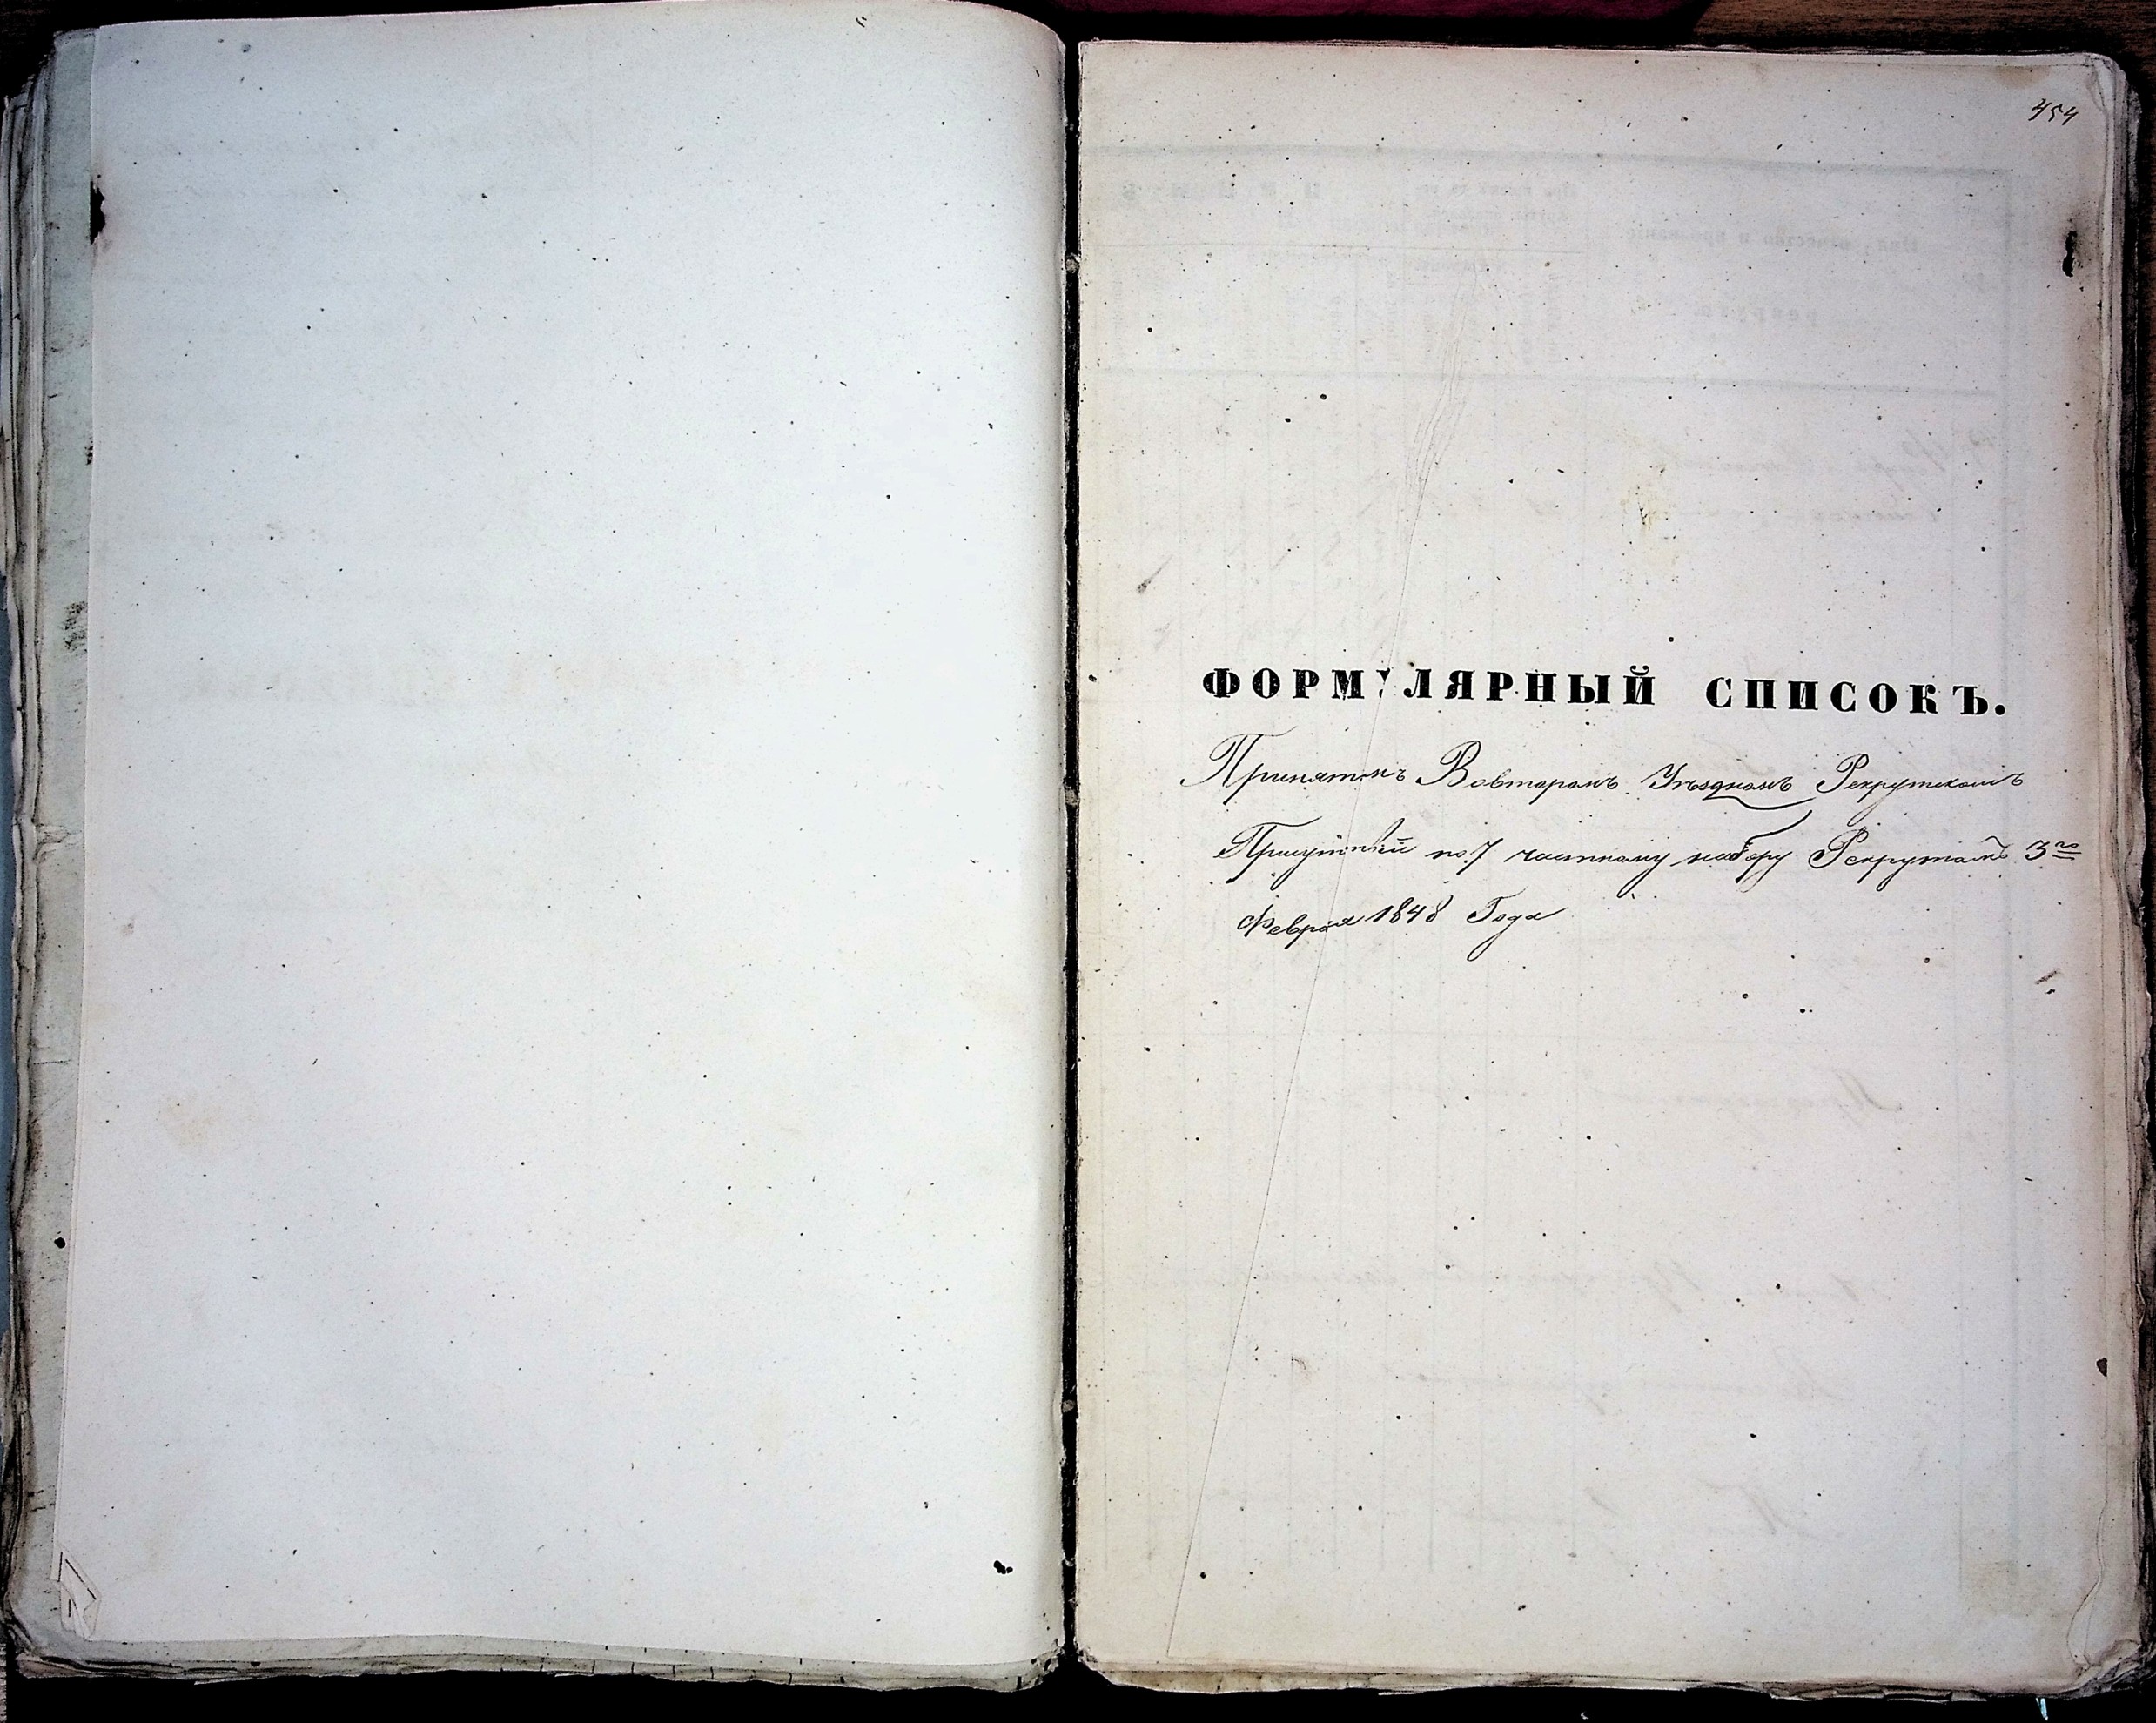 454
ФОРМУЛЯРНЫЙ СПИСОКЪ.
Принятымъ Вовторомъ Уѣздномъ Рекрутскомъ
Присутствіи по 7 частному набору Рекрутамъ 3го
Февраля 1848 Года